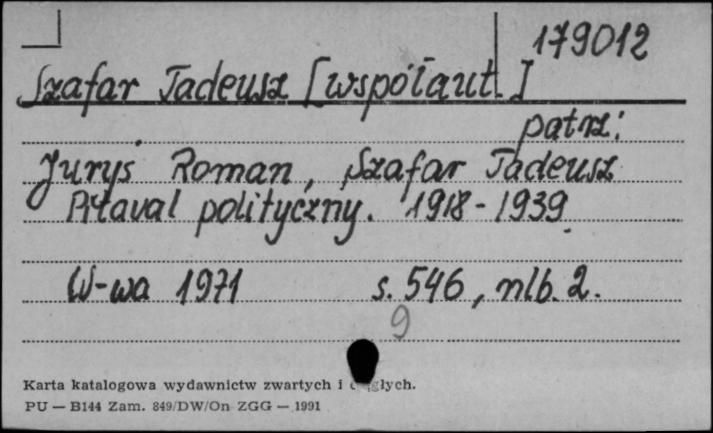 179012
Szafar Tadeusz [współaut.]
patrz:
Juryś Roman, Szafar Tadeusz
Pitaval polityczny. 1918-1939
W-wa 1971 s. 546, nlb. 2.
9
Karta katalogowa wydawnictw zwartych i
PU — B144 Zam. 849/DW/On ZGG — 1991